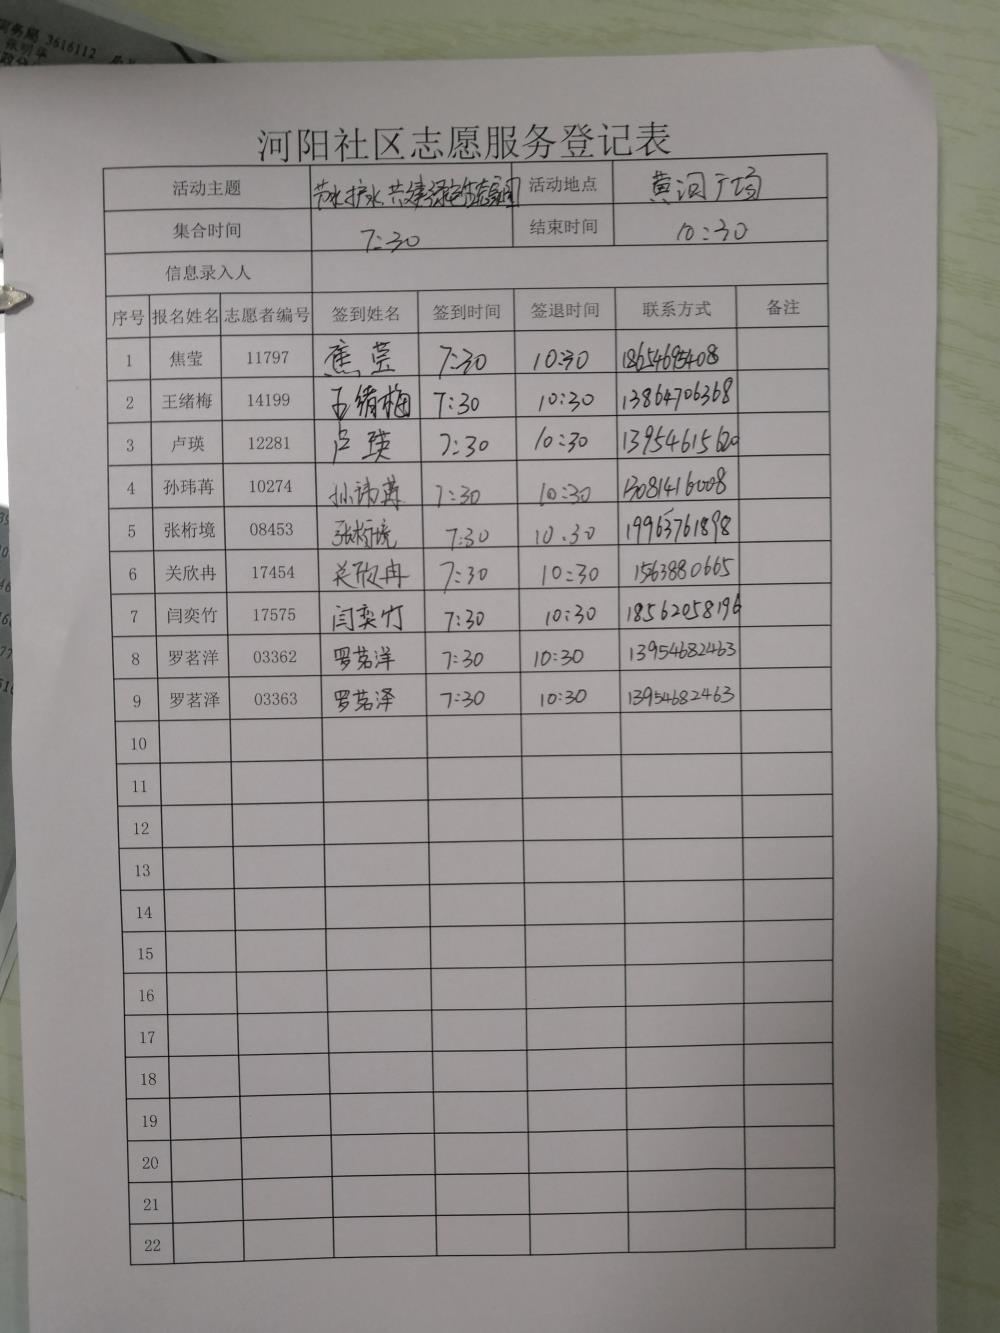 河阳社区志愿服务登记表
活动主题 节水护水 共建绿色生态家园 活动地点 黄河广场
集合时间 7:30 结束时间 10:30
信息录入人
序号 报名姓名 志愿者编号 签到姓名 签到时间 签退时间 联系方式 备注
1 焦莹 11797 焦莹 7:30 10:30 18654695408
2 王绪梅 14199 王绪梅 7:30 10:30 13864706368
3 卢瑛 12281 卢瑛 7:30 10:30 13954615620
4 孙玮苒 10274 孙玮苒 7:30 10:30 13081416008
5 张桁境 08453 张桁境 7:30 10:30 19963761898
6 关欣冉 17454 关欣冉 7:30 10:30 1563880665
7 闫奕竹 17575 闫奕竹 7:30 10:30 18562058196
8 罗茗洋 03362 罗茗洋 7:30 10:30 13954682463
9 罗茗泽 03363 罗茗泽 7:30 10:30 13954682463
10
11
12
13
14
15
16
17
18
19
20
21
22